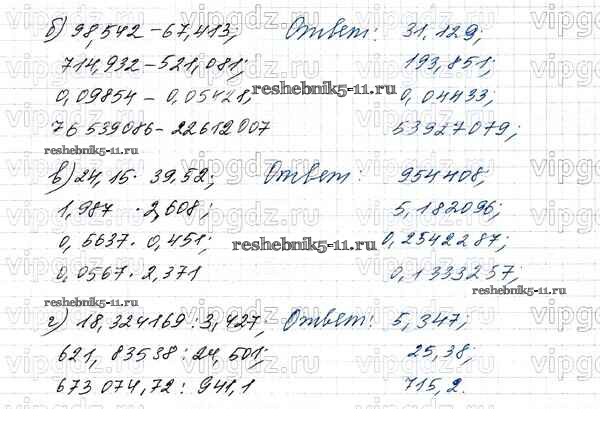 б) 98,542 - 67,413; Ответ: 31,129;
714,932 - 521,081; 193,851;
0,09854 - 0,05421; 0,04433;
reshebnik5-11.ru
76 539086 - 22612007 53927079;
reshebnik5-11.ru
в) 24,15 · 39,52; Ответ: 954408;
1,987 · 2,608; 5,182096;
0,5637 · 0,451; 0,2542287;
reshebnik5-11.ru
0,0567 · 2,371 0,1333257;
reshebnik5-11.ru
reshebnik5-11.ru
г) 18,324169 : 3,427; Ответ: 5,347;
621,83538 : 24,501; 25,38;
673 074,72 : 941,1 715,2.
vipgdz.ru